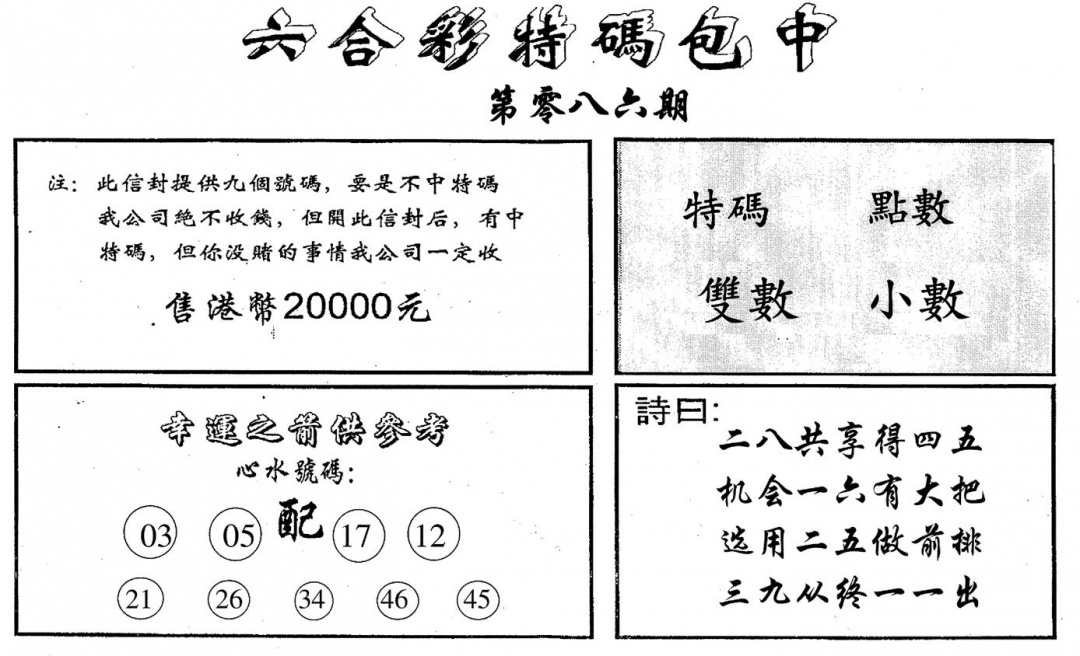 六合彩特碼包中
第零八六期
注：此信封提供九個號碼，要是不中特碼
我公司絶不收錢，但開此信封后，有中
特碼，但你没賭的事情我公司一定收
售港幣20000元
特碼 點數
雙數 小數
幸運之箭供參考
心水號碼：
配
03 05 17 12
21 26 34 46 45
詩曰：
二八共享得四五
机会一六有大把
选用二五做前排
三九从终一一出